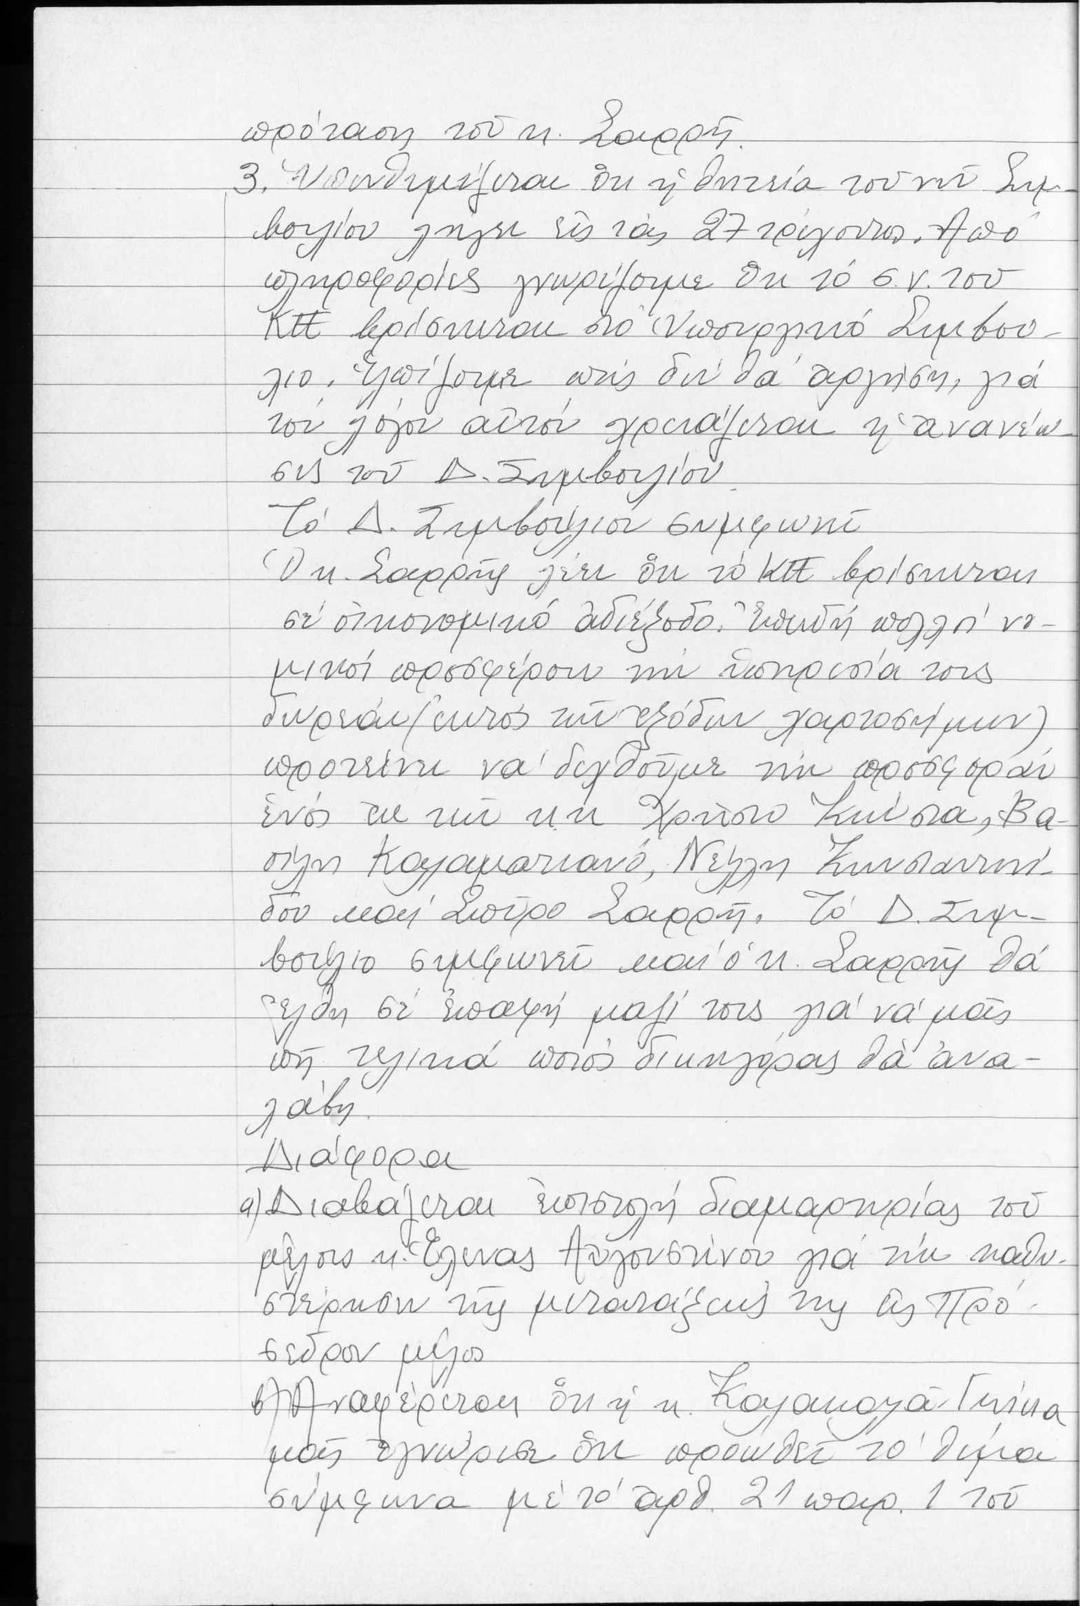 πρόταση τοῦ κ. Σαρρῆ.
3. Ὑπενθυμίζεται ὅτι ἡ θητεία τοῦ νῦν Συμ-
βουλίου λήγει εἰς τάς 27 τρέχοντος. Ἀπό
πληροφορίες γνωρίζουμε ὅτι τό σ.ν. τοῦ
ΚΠΕ βρίσκεται στό Ὑπουργικό Συμβού-
λιο. Ἐλπίζουμε πώς δέν θά ἀργήση, γιά
τόν λόγον αὐτόν χρειάζεται ἡ ἀνανέω-
σις τοῦ Δ. Συμβουλίου.
Τό Δ. Συμβούλιον συμφωνεῖ
Ὁ κ. Σαρρῆς λέει ὅτι τό ΚΠΕ βρίσκεται
σέ οἰκονομικό ἀδιέξοδο. Ἐπειδή πολλοί νο-
μικοί προσφέρουν τήν ὑπηρεσία τους
δωρεάν (ἐκτός τῶν ἐξόδων χαρτοσήμων)
προτείνει νά δεχθοῦμε τήν προσφοράν
ἑνός ἐκ τῶν κ.κ. Χρῆστο Κώνστα, Βα-
σίλη Καλαματιανό, Νέλλη Κωνσταντινί-
δου καί Σπῦρο Σαρρῆ. Τό Δ. Συμ-
βούλιο συμφωνεῖ καί ὁ κ. Σαρρῆς θά
ἔλθη σέ ἐπαφή μαζί τους γιά νά μᾶς
πῆ τελικά ποιός δικηγόρος θά ἀνα-
λάβη.
Διάφορα
α) Διαβάζεται ἐπιστολή διαμαρτυρίας τοῦ
μέλους κ. Ἕλενας Αὐγουστίνου γιά τήν καθυ-
στέρησιν τῆς μετατάξεώς της εἰς Πρό-
σεδρον μέλος
β) Ἀναφέρεται ὅτι ἡ κ. Καλακαλᾶ-Γκίκα
μᾶς ἐγνώρισε ὅτι προωθεῖ τό θέμα
σύμφωνα μέ τό ἀρθ. 21 παρ. 1 τοῦ